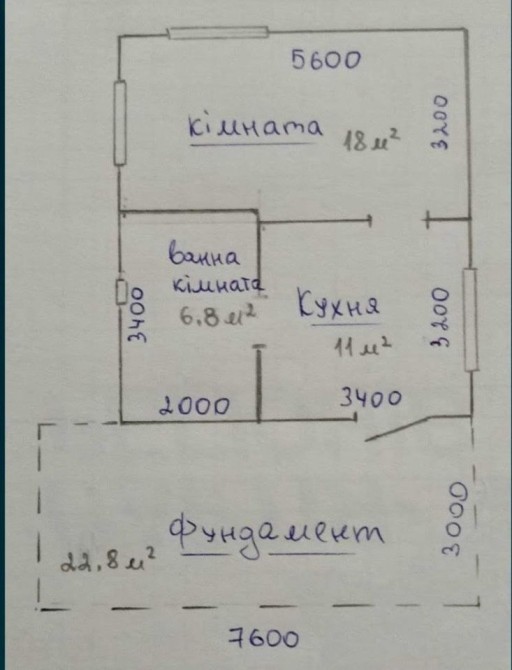 5600
кімната 18 м²
3200
ванна
кімната
6.8 м²
3400
Кухня
11 м²
3200
2000
3400
Фундамент
22.8 м²
3000
7600